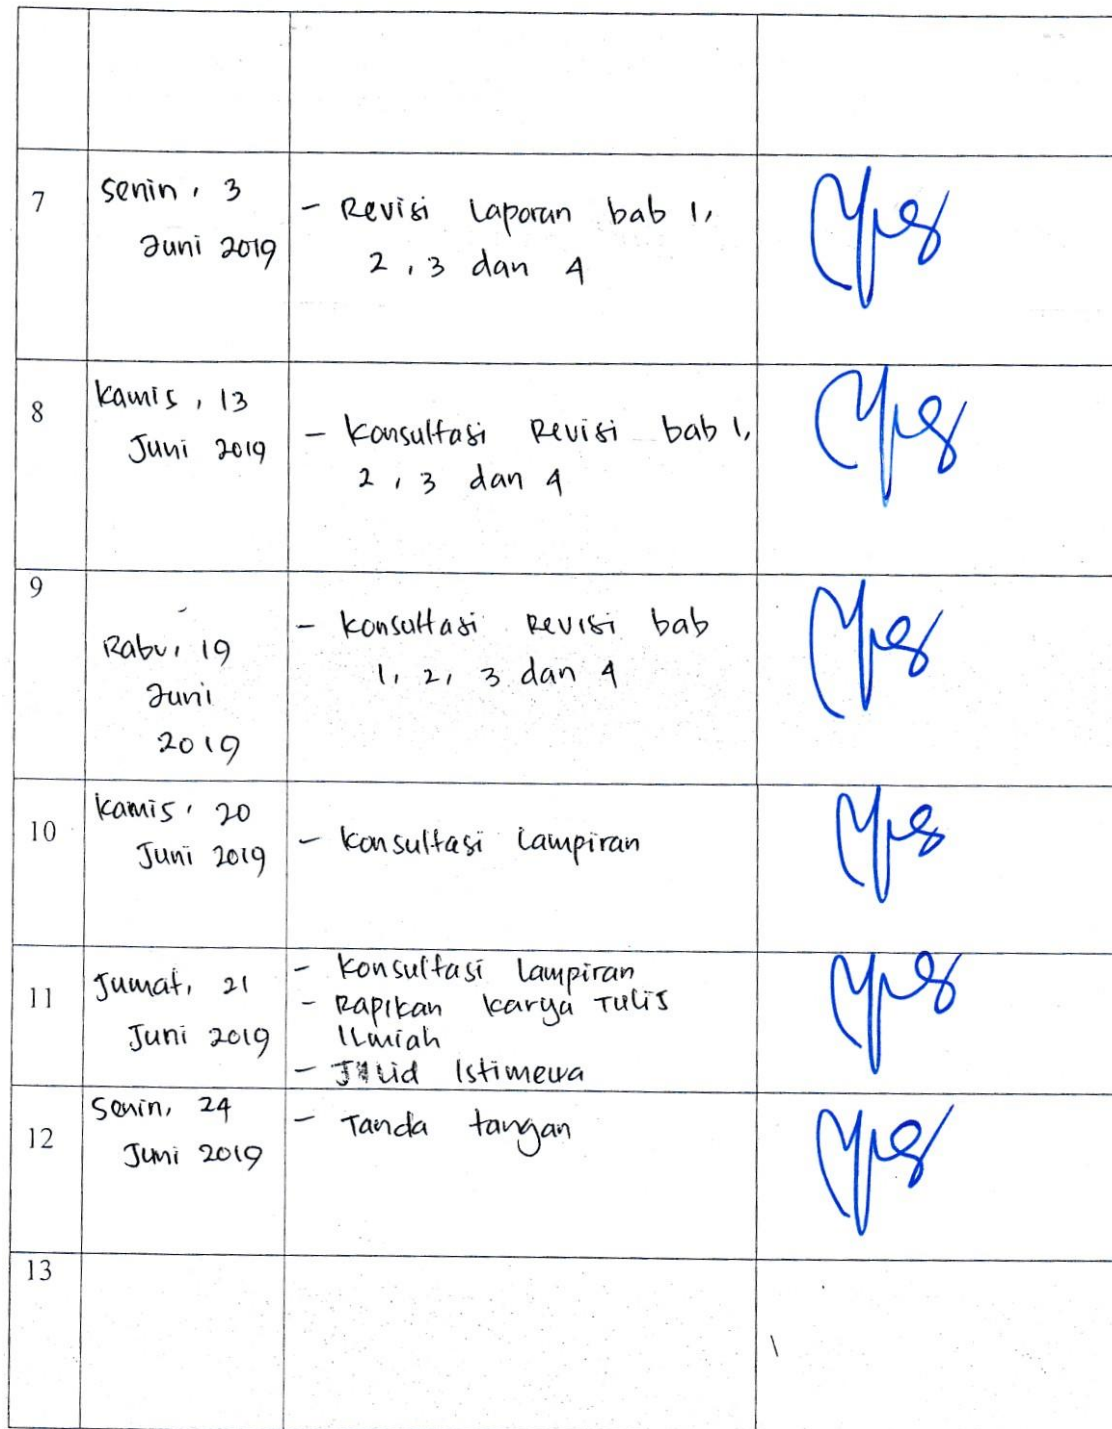 7
Senin, 3
Juni 2019
- Revisi Laporan bab 1,
2, 3 dan 4
8
Kamis, 13
Juni 2019
- Konsultasi Revisi bab 1,
2, 3 dan 4
9
Rabu, 19
Juni
2019
- Konsultasi Revisi bab
1, 2, 3 dan 4
10
Kamis, 20
Juni 2019
- Konsultasi Lampiran
11
Jumat, 21
Juni 2019
- Konsultasi Lampiran
- Rapikan Karya Tulis
Ilmiah
- Jilid Istimewa
12
Senin, 24
Juni 2019
- Tanda tangan
13